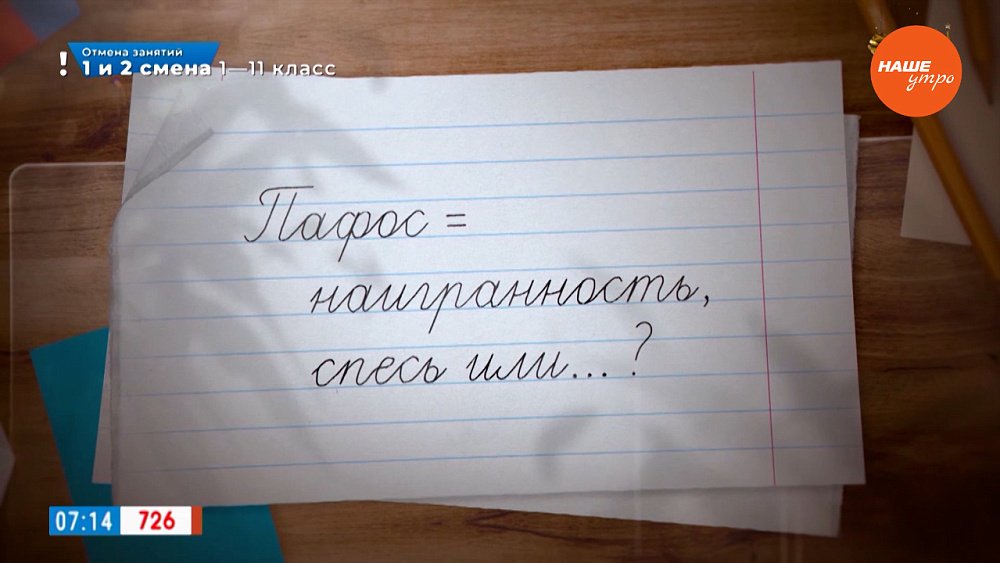 Отмена занятий
! 1 и 2 смена 1—11 класс
НАШЕ
утро
Пафос =
наигранность,
спесь или... ?
07:14 726